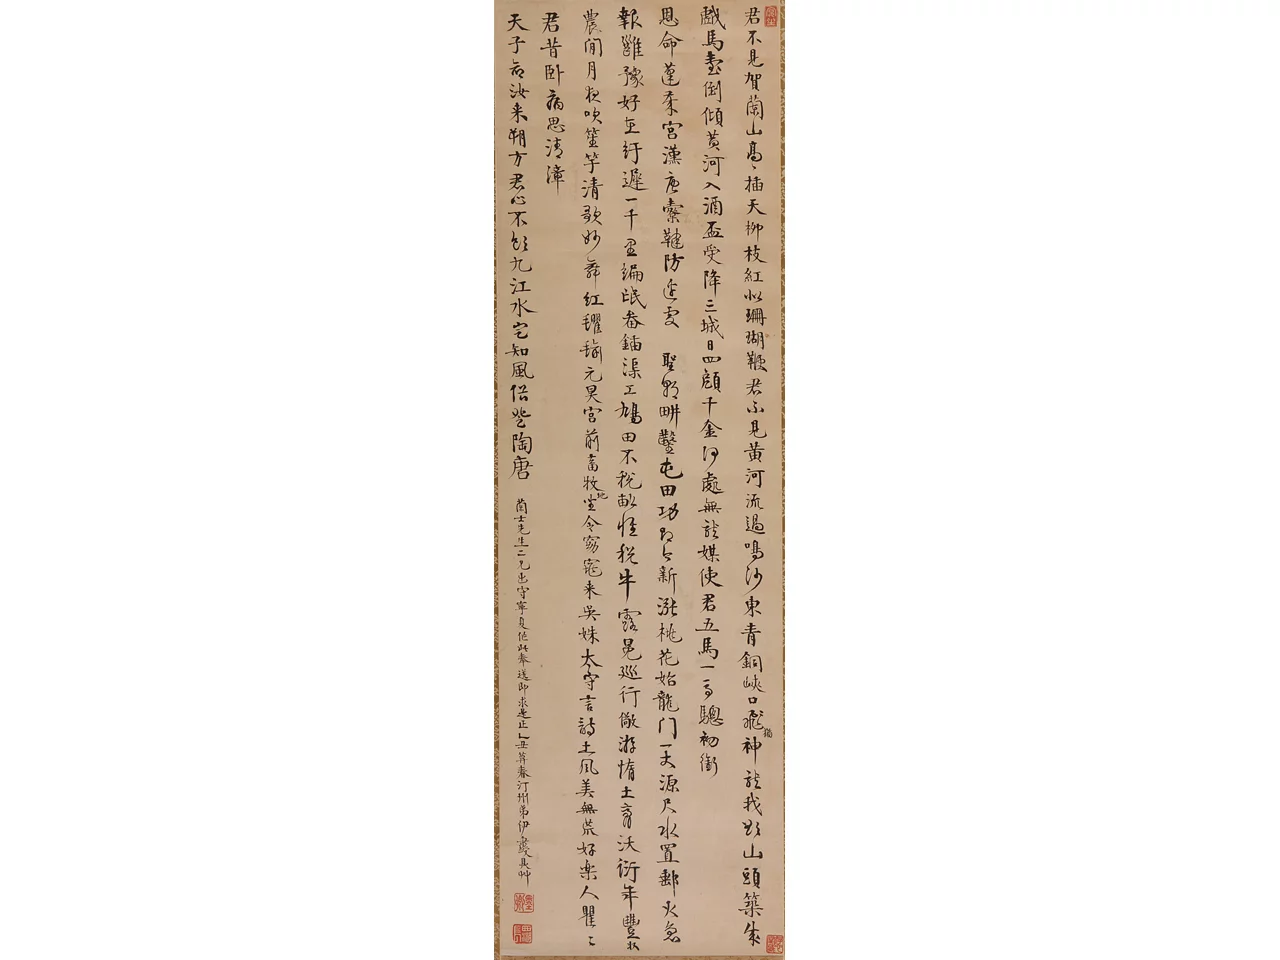 君不見賀蘭山高高插天柳枝紅似珊瑚鞭君不見黃河流過鳴沙東青銅峽口飛神龍我欲山頭築糟
戲馬臺倒傾黃河入酒盃受降三城日四顧千金何處無龍媒使君五馬一馬驄初銜
恩命蓬萊宮漢唐櫜鞬防邊更 聖朝畊鑿屯田功昨今新漲桃花始龍門一丈源尺水置郵火急
報雖豫好在紆遲一千里編氓畚鍤渠工鳩田不稅畝惟稅牛露冕巡行儆游惰土膏沃衍年豐收
農閒月夜吹笙竽清歌妙舞紅氍毹元昊宮前畜牧地坐令窈窕來吳姝太守言詩土風美無荒好樂人瞿瞿
君昔臥病思清漳
天子命汝來朔方君心不飲九江水定知風俗登陶唐
蘭士先生二兄出守寧夏作此奉送即求是正乙丑暮春汀州弟伊秉綬具艸